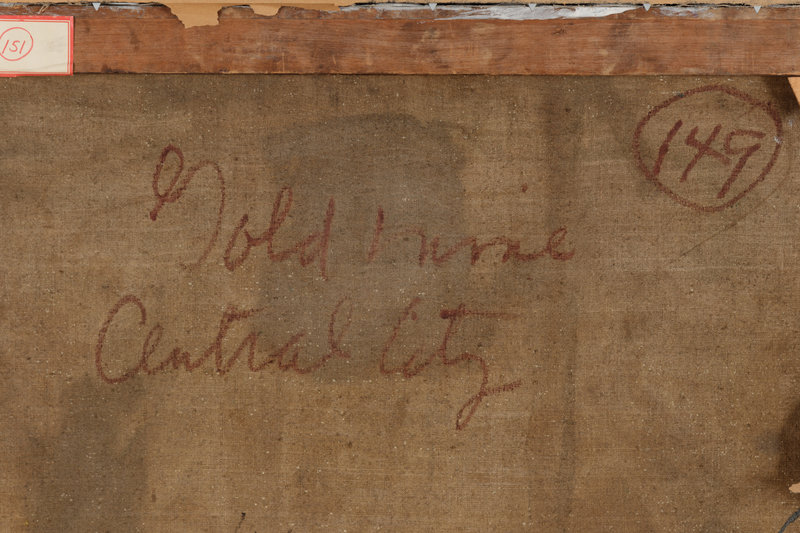 151
149
Gold Mine
Central City